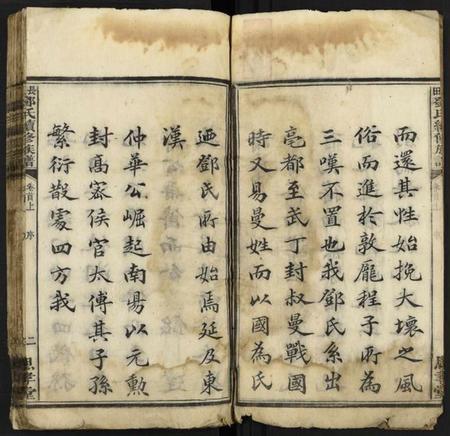 田鄧氏續修族譜
而還其性始挽大壞之風
俗而進於敦龐程子所為
三嘆不置也我鄧氏系出
亳都至武丁封叔曼戰國
時又易曼姓而以國為氏
迺鄧氏所由始焉延及東
漢
仲華公崛起南陽以元勲
封高密侯官太傅其子孫
繁衍散處四方我
長鄧氏續修族譜
卷首上
序
二
思孝堂